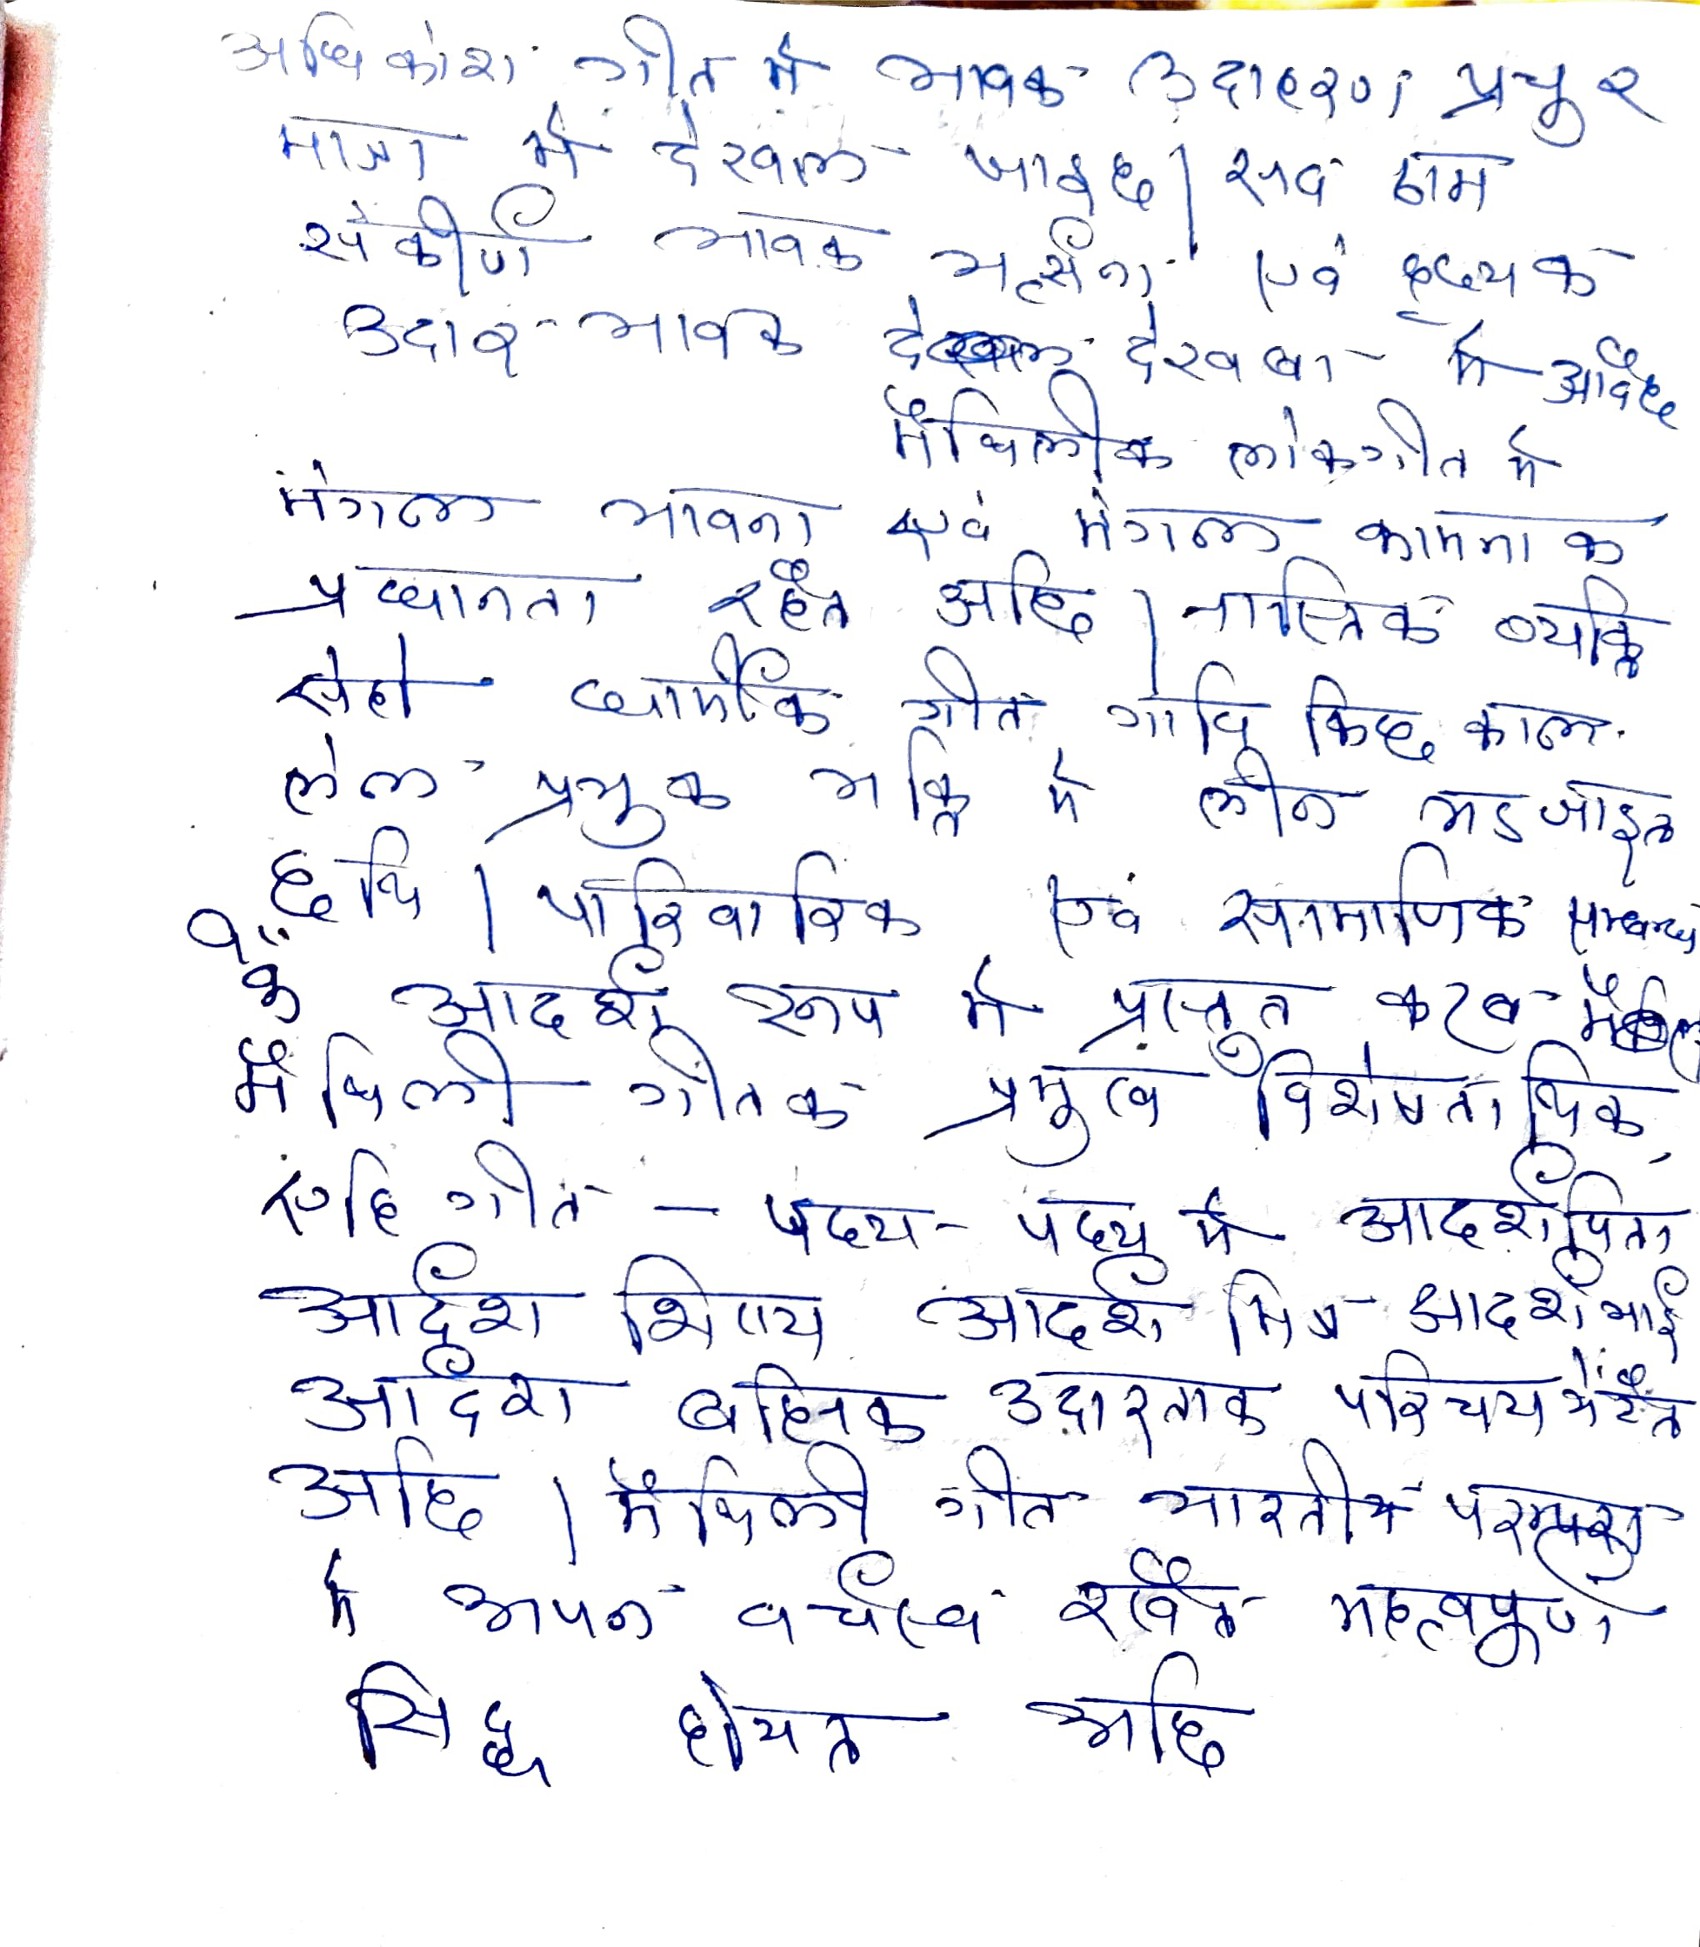 अधिकांश गीत मे भावक उदाहरण प्रचुर
मात्रा मे देखल जाइछ। सब ठाम
संकीर्ण भावक भर्त्सना एवं हृदयक
उदार भावक देखबा मे अबैछ
मैथिलीक लोकगीत मे
मंगल भावना एवं मंगल कामना क
प्रधानता रहैत अछि। नास्तिक व्यक्ति
सेहो धार्मीक गीत गाबि किछु काल
लेल प्रभुक भक्ति मे लीन भऽ जाइत
छथि। पारिवारिक एवं सामाजिक सम्बन्ध
के आदर्श रूप मे प्रस्तुत करब
मैथिली गीतक प्रमुख विशेषता थिक,
एहि गीत - पद्य - पद्य मे आदर्श पिता
आर्दश शिष्य आदर्श मित्र आदर्श भाई
आर्दश बहिनक उदारताक परिचय भेटैत
अछि। मैथिली गीत भारतीय परम्परा
मे अपन वर्चस्व रखैत महत्वपूर्ण
सिद्ध होयत अछि